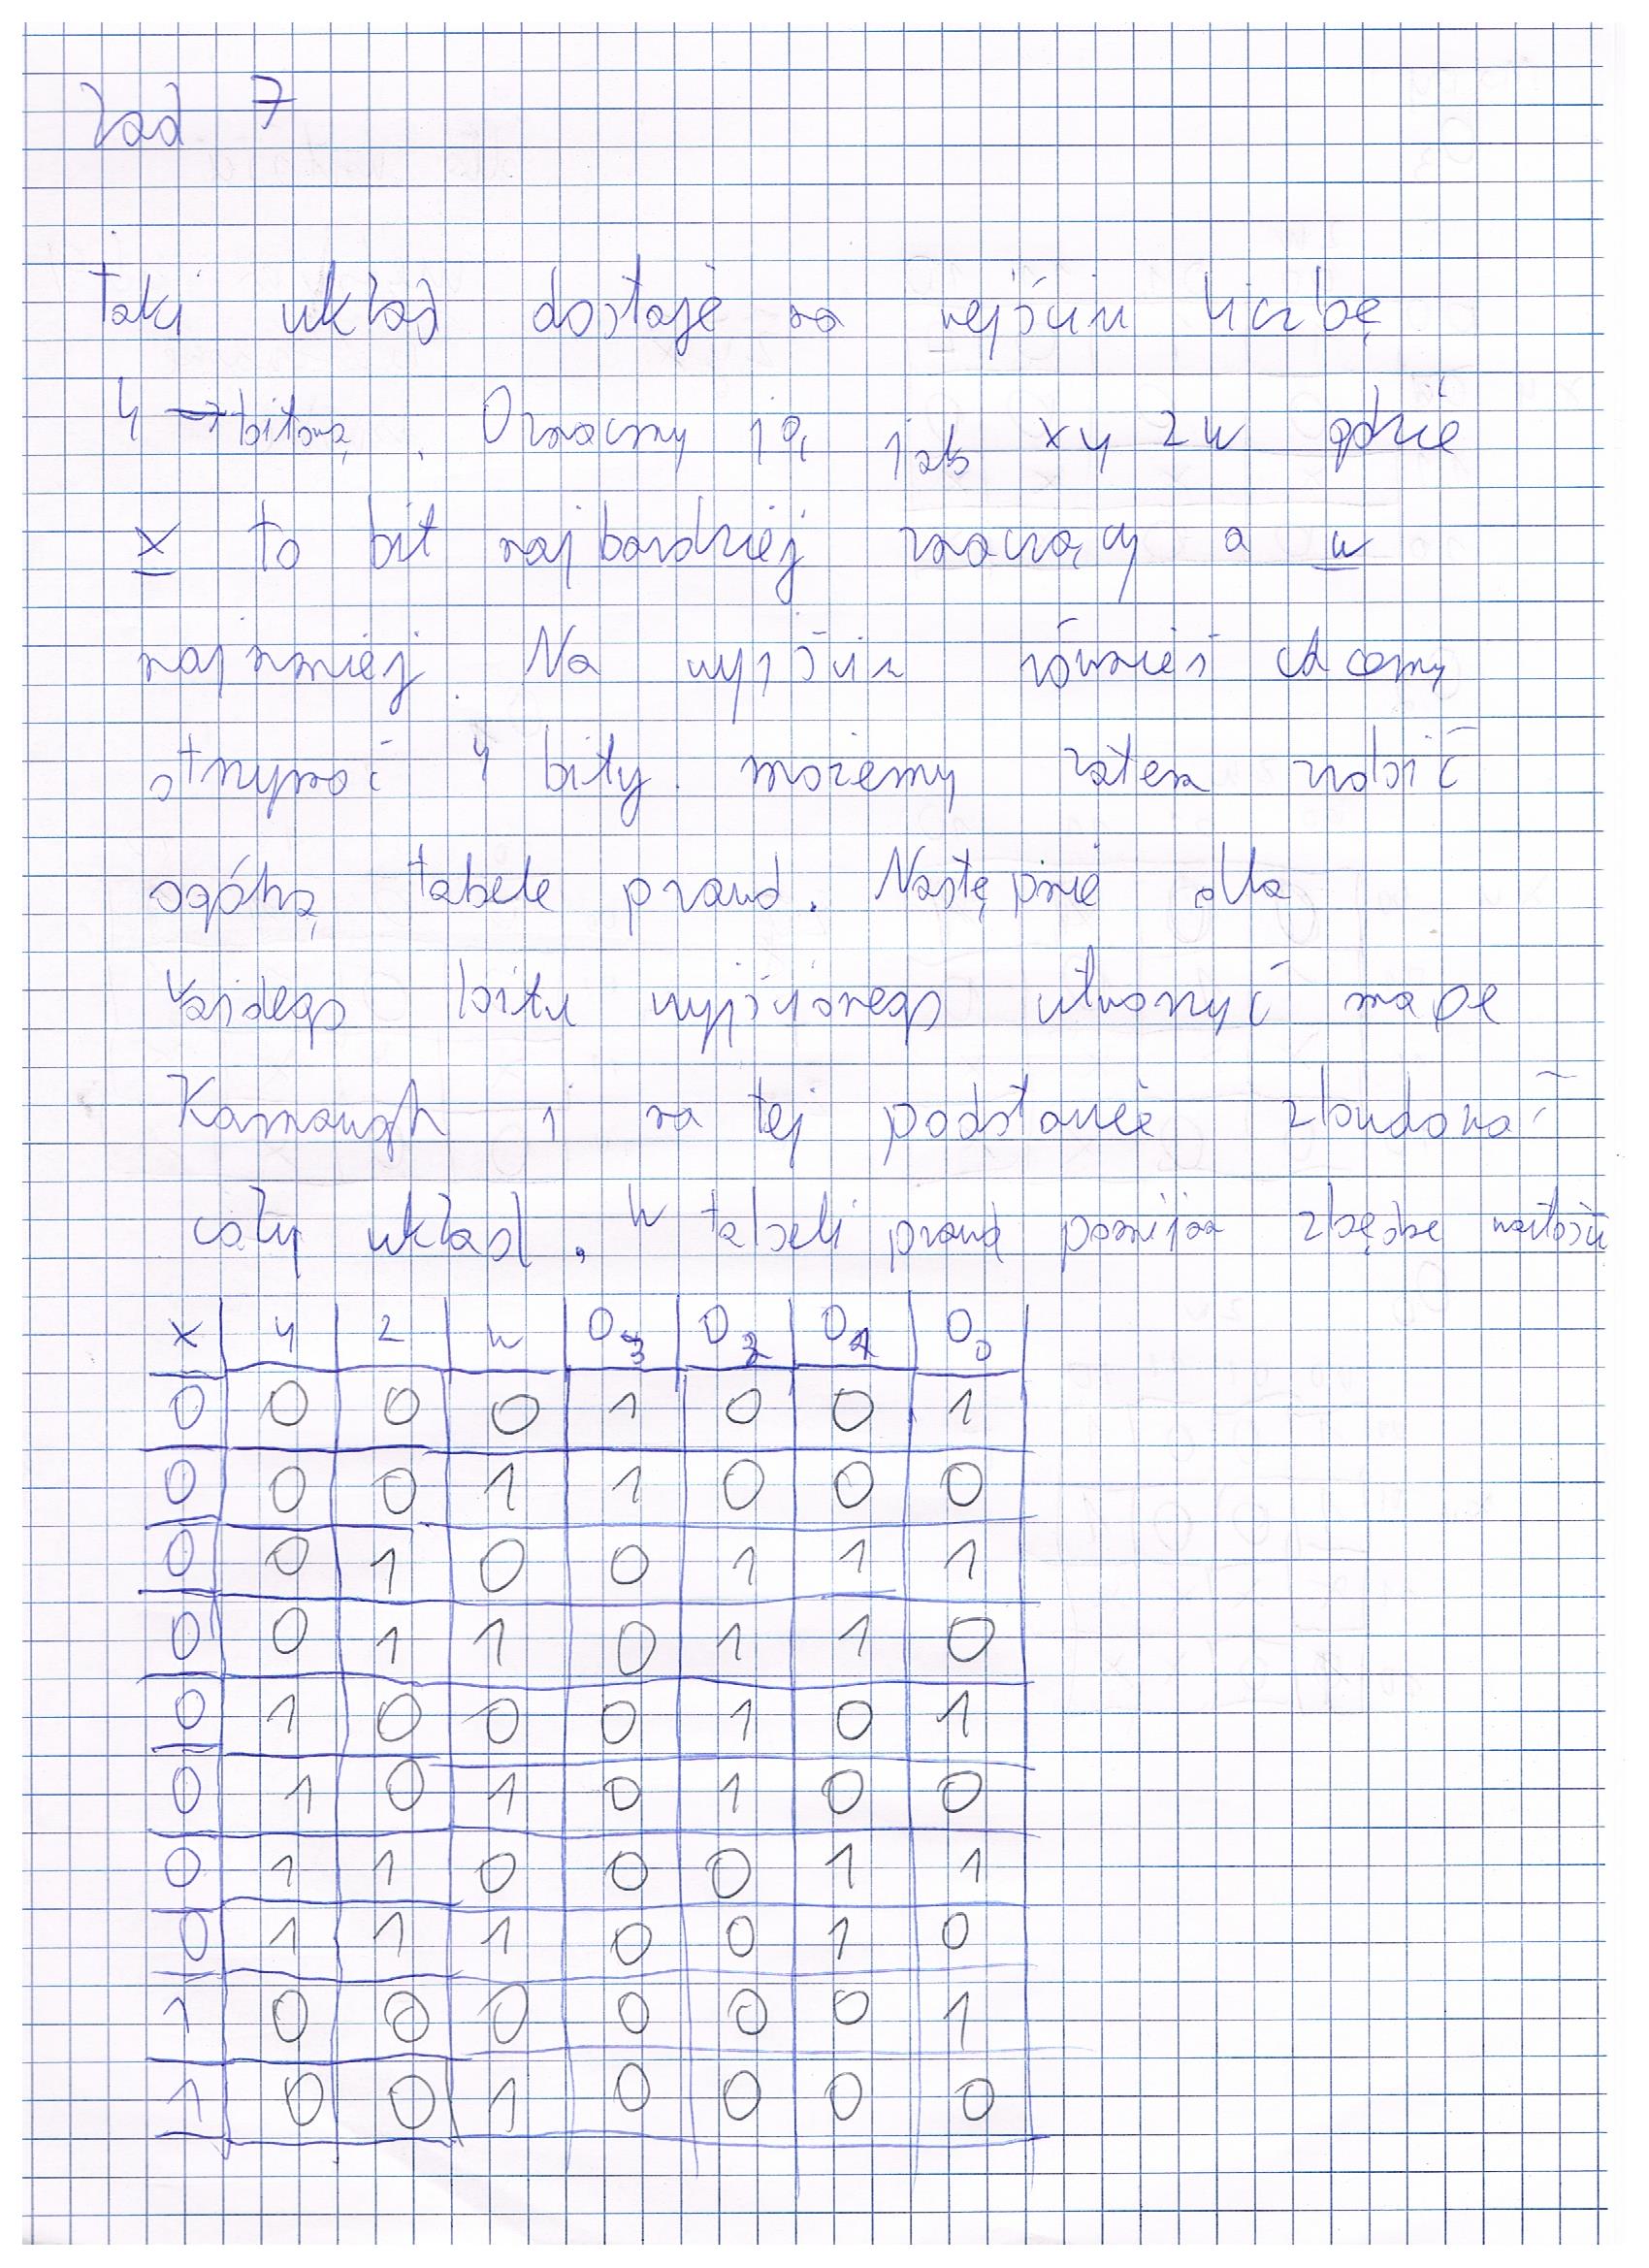 Zad 7
Taki układ dostaje na wejściu liczbę
4 bitową. Oznaczmy ją jak xyzw gdzie
x to bit najbardziej znaczący a w
najmniej. Na wyjściu również chcemy
otrzymać 4 bity. możemy zatem zrobić
ogólną tabele prawd. Następnie dla
każdego bitu wyjściowego utworzyć mape
Karnaugh i na tej podstawie zbudować
cały układ. W tabeli prawd pomijam zbędne wartości
x y z w O3 O2 O1 O0
0 0 0 0 1 0 0 1
0 0 0 1 1 0 0 0
0 0 1 0 0 1 1 1
0 0 1 1 0 1 1 0
0 1 0 0 0 1 0 1
0 1 0 1 0 1 0 0
0 1 1 0 0 0 1 1
0 1 1 1 0 0 1 0
1 0 0 0 0 0 0 1
1 0 0 1 0 0 0 0